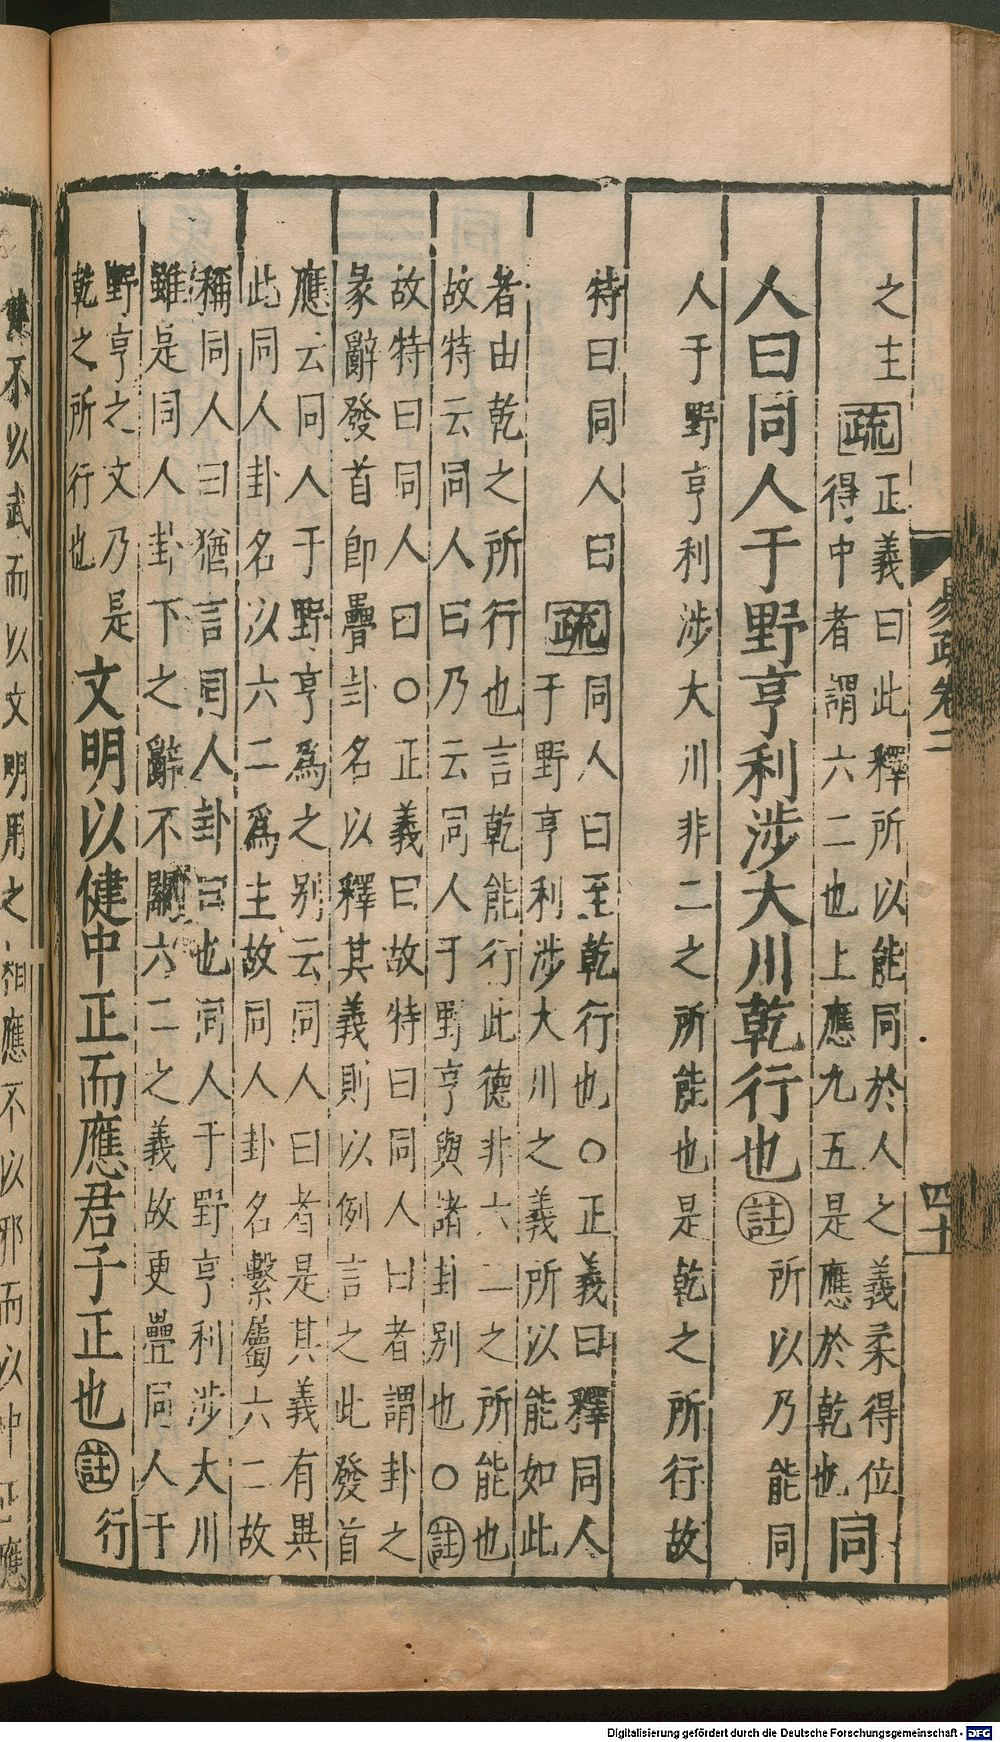 之主疏正義曰此釋所以能同於人之義柔得位
得中者謂六二也上應九五是應於乾也同
人曰同人于野亨利涉大川乾行也註所以乃能同
人于野亨利涉大川非二之所能也是乾之所行故
特曰同人曰疏同人曰至乾行也○正義曰釋同人
于野亨利涉大川之義所以能如此
者由乾之所行也言乾能行此德非六二之所能也
故特云同人曰乃云同人于野亨與諸卦別也○註
故特曰同人曰○正義曰故特曰同人曰者謂卦之
彖辭發首即疊卦名以釋其義則以例言之此發首
應云同人于野亨爲之別云同人曰者是其義有異
此同人卦名以六二爲主故同人卦名繫屬六二故
稱同人曰猶言同人卦曰也同人于野亨利涉大川
雖是同人卦下之辭不關六二之義故更疊同人于
野亨之文乃是
乾之所行也文明以健中正而應君子正也註行
易疏卷二
四十
不以武而以文明用之相應不以邪而以中正應
Digitalisierung gefördert durch die Deutsche Forschungsgemeinschaft - DFG